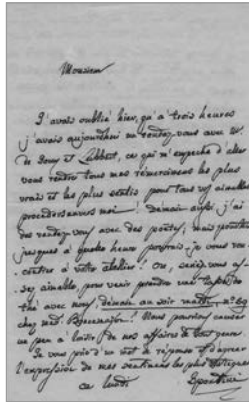 Monsieur
J'avais oublié hier, qu'à trois heures
j'avais aujourd'hui un rendez-vous avec M.
de Jouy et , ce qui m'empêche d'aller
vous rendre tous mes remerciemens les plus
vrais et les plus sentis pour tous vos aimables
procédés envers moi! demain aussi j'ai
des rendez-vous avec des poëtes, mais pourtant
jusques à quelle heure pourrais-je vous ren-
contrer à votre attelier? Ou, seriez-vous as-
sez aimable, pour venir prendre une tasse de
thé avec nous, demain au soir mardi, n.º 69
chez mad. ? Nous pourrions causer
un peu à loisir de nos affaires de tout genre.
Je vous prie d'un mot de réponse et d'agréer
l'expression de mes sentimens les plus distingués
ce lundi Spontini